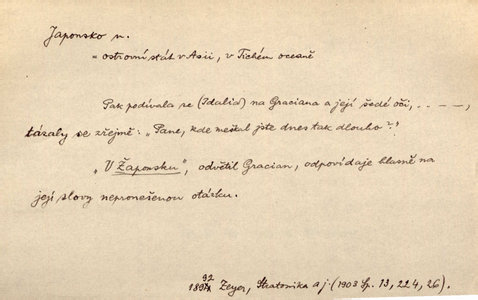 Japonsko n.
= ostrovní stát v Asii, v Tichém oceaně
Pak podívala se (Idalia) na Graciana a její šedé oči, . – – –,
tázaly se zřejmě: „Pane, kde meškal jste dnes tak dlouho?"
„V Žaponsku", odvětil Gracian, odpovídaje hlasně na
její slovy nepronešenou otázku.
92
189 Zeyer, Stratonika a j. (1903 Sp. 13, 224, 26).